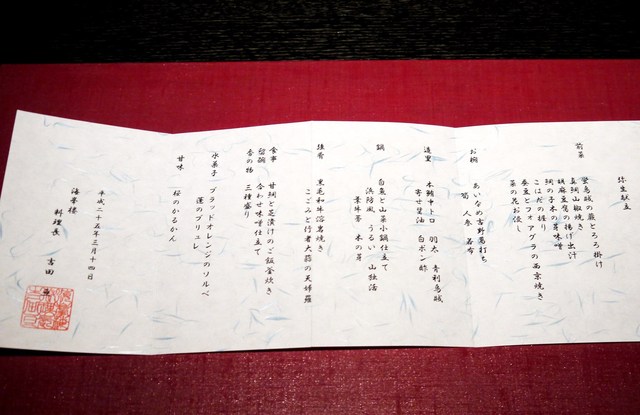 弥生献立
前菜
蛍烏賊の蕨とろろ掛け
真河山椒焼き
胡麻豆腐の揚げ出汁
河の子木の芽味噌
こはだの握り
蚕豆とフォアグラの西京焼き
菜の花お浸し
お椀
あいなめ吉野葛打ち
筍 人参 若布
造里
本鮪中トロ 羽太 青利烏賊
寄せ醤油 白ポン酢
鍋
白魚と山菜小鍋仕立て
浜防風 うるい 山独活
葉牛蒡 木の芽
強肴
黒毛和牛溶岩焼き
こごみと行者大蒜の天婦羅
食事
甘鯛と菜漬けのご飯釜炊き
留椀
合わせ味噌仕立て
香の物
三種盛り
水菓子
ブラッドオレンジのソルベ
蓮のブリュレ
甘味
桜のかるかん
平成二十五年三月十四日
料理長 吉田